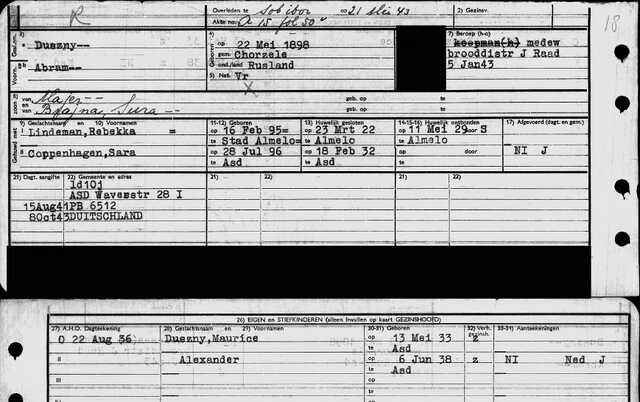 R
Overleden te Sobibor op 21 Mei 43 2) Gezinsv.
Akte no: A 15 fol 50 18
Duszny-- 3) op 22 Mei 1898 7) Beroep (h-o)
gem. Chorzele koopman(h) medew
Abram-- ond./land Rusland brooddistr J Raad
5) Nat. Vr 5 Jan43
Majer-- geb. op op
Sura-- geb. op op
9) Geslachtsnaam en 10) Voornamen 11-12) Geboren 13) Huwelijk gesloten 14-15-16) Huwelijk ontbonden 17) Afgevoerd (dagt. en gem.)
Lindeman,Rebekka = op 16 Feb 95= op 23 Mrt 22 op 11 Mei 29 door S
te Stad Almelo= te Almelo te Almelo
Coppenhagen,Sara op 28 Jul 96 op 18 Feb 32 op door NI J
te Asd te Asd te
21) Dagt. aangifte 22) Gemeente en adres 21) 22) 21) 22)
ld10j
ASD Waverstr 28 I
15Aug41 PB 6512
80ct43 DUITSCHLAND
26) EIGEN en STIEFKINDEREN (alleen invullen op kaart GEZINSHOOFD)
27) A.H.O. Dagteekening 28) Geslachtsnaam en 29) Voornamen 30-31) Geboren 32) Verh. gezinsh. 33-31) Aanteekeningen
O 22 Aug 36 Duszny,Maurice op 13 Mei 33 z
te Asd
II Alexander op 6 Jun 38 z NI Ned J
te Asd
III op
te